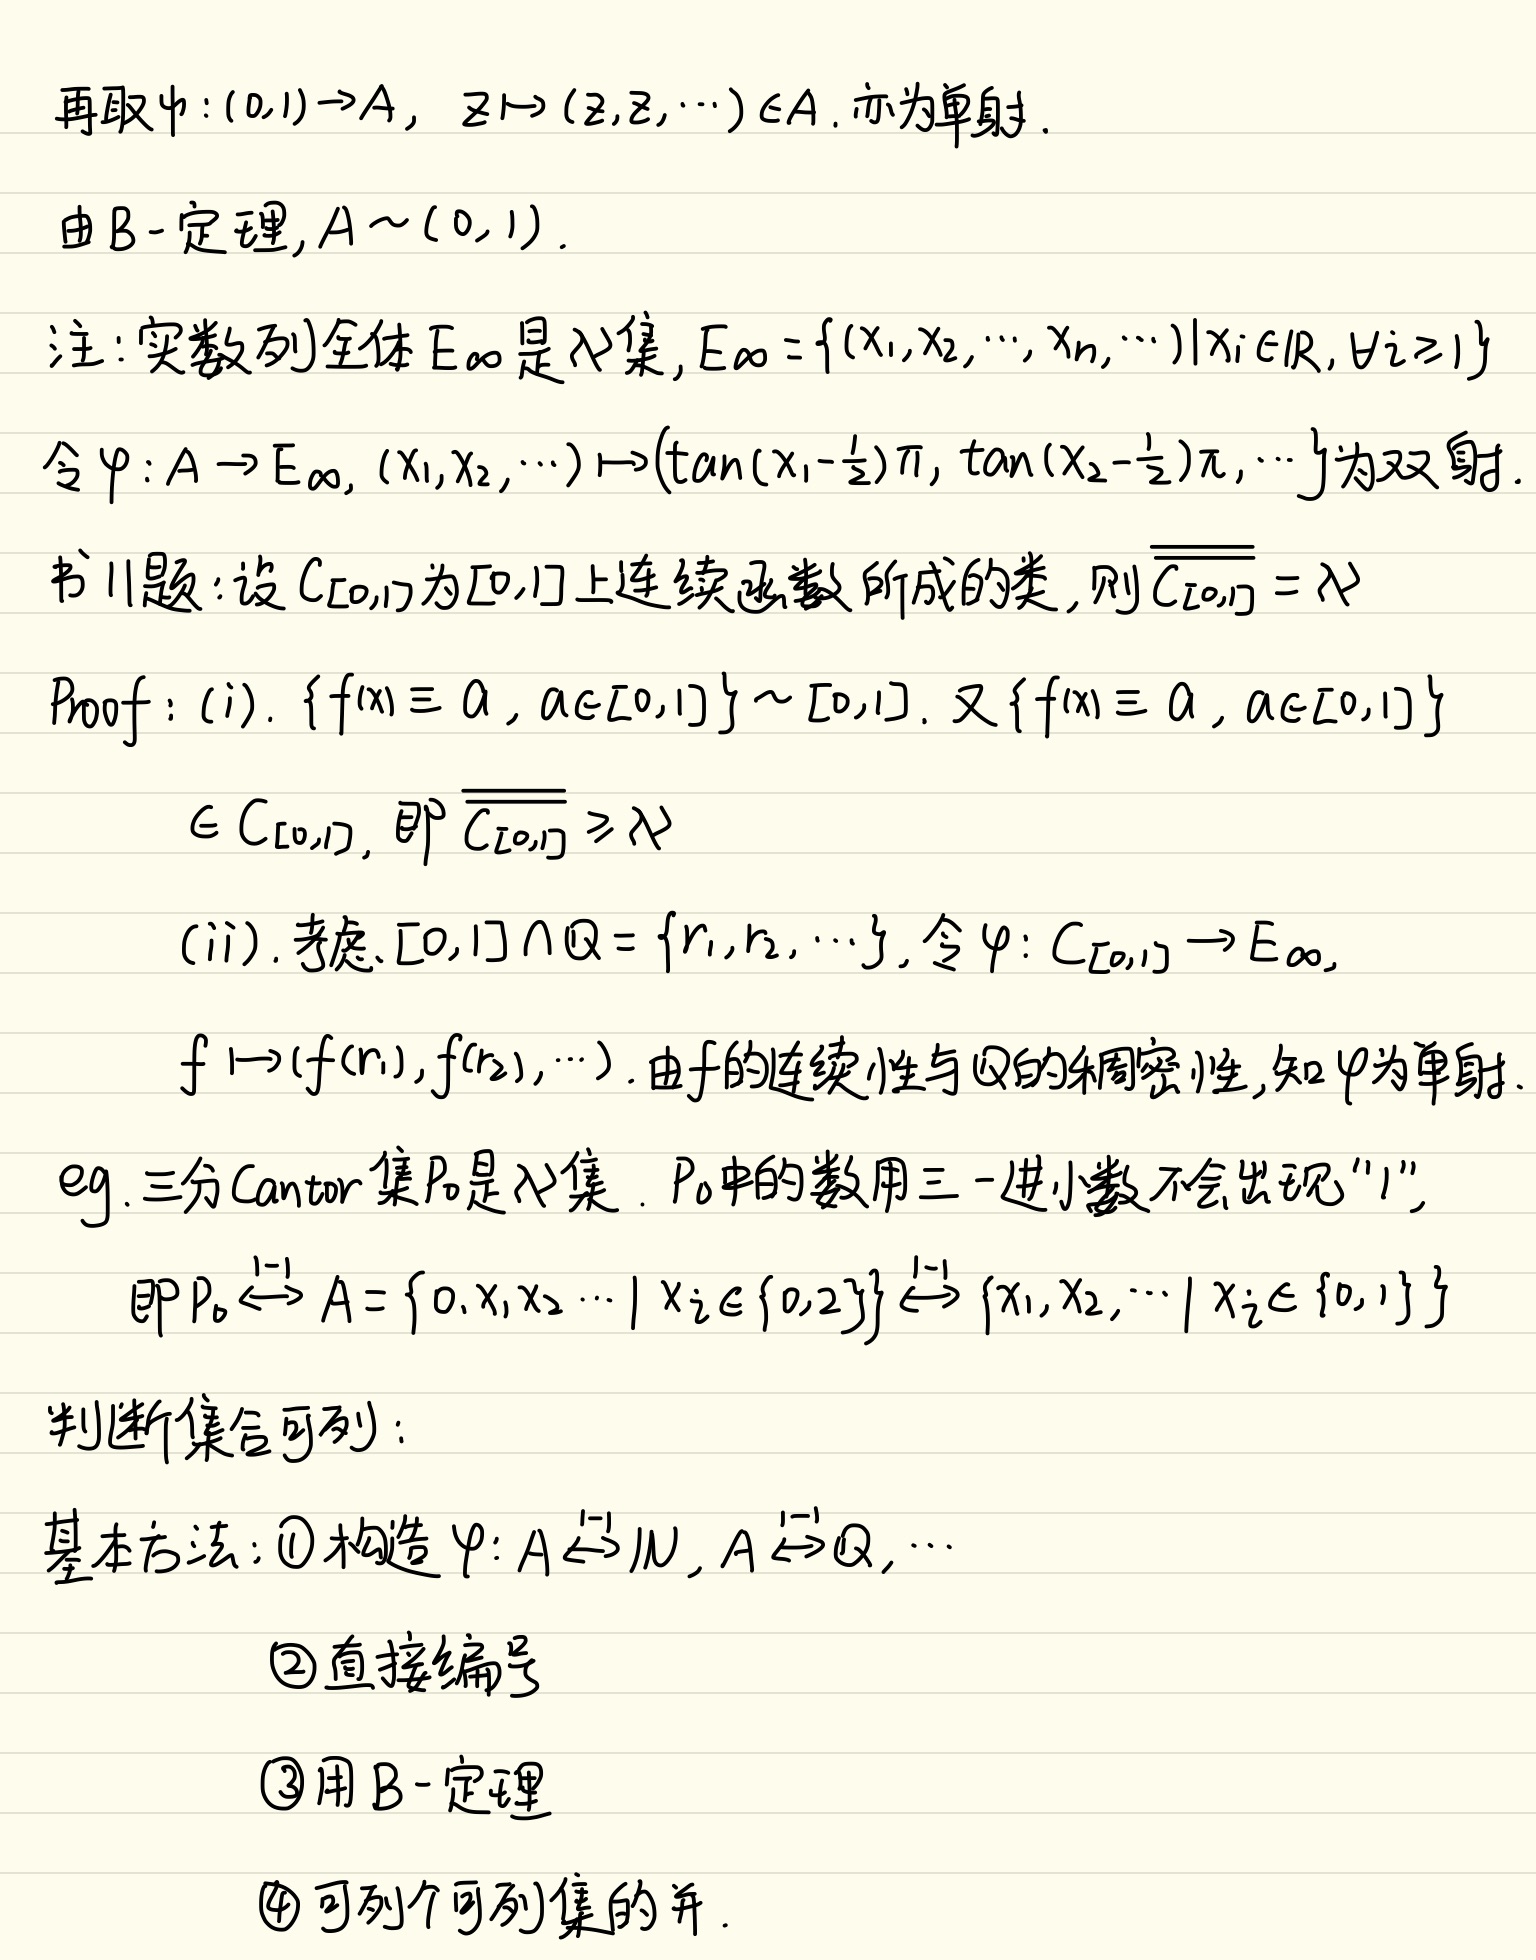 再取ψ:(0,1)→A, z↦(z,z,⋯)∈A.亦为单射.
由B-定理,A~(0,1).
注:实数列全体E∞是λ集,E∞={(x₁,x₂,⋯,xₙ,⋯)|xᵢ∈ℝ,∀i≥1}
令φ:A→E∞,(x₁,x₂,⋯)↦(tan(x₁-½)π, tan(x₂-½)π,⋯}为双射.
书11题:设C[0,1]为[0,1]上连续函数所成的类,则 C̿[0,1] = λ
Proof:(i).{f(x)≡a, a∈[0,1]}~[0,1].又{f(x)≡a, a∈[0,1]}
∈C[0,1],即 C̿[0,1] ≥λ
(ii).考虑[0,1]∩ℚ={r₁,r₂,⋯},令φ:C[0,1]→E∞,
f↦(f(r₁),f(r₂),⋯).由f的连续性与ℚ的稠密性,知φ为单射.
eg.三分Cantor集P₀是λ集.P₀中的数用三-进小数不会出现"1",
即P₀ ⟷(1-1) A={0.x₁x₂⋯|xᵢ∈{0,2}} ⟷(1-1) {x₁,x₂,⋯|xᵢ∈{0,1}}
判断集合可列:
基本方法:①构造φ:A ⟷(1-1) ℕ, A ⟷(1-1) ℚ,⋯
②直接编号
③用B-定理
④可列个可列集的并.